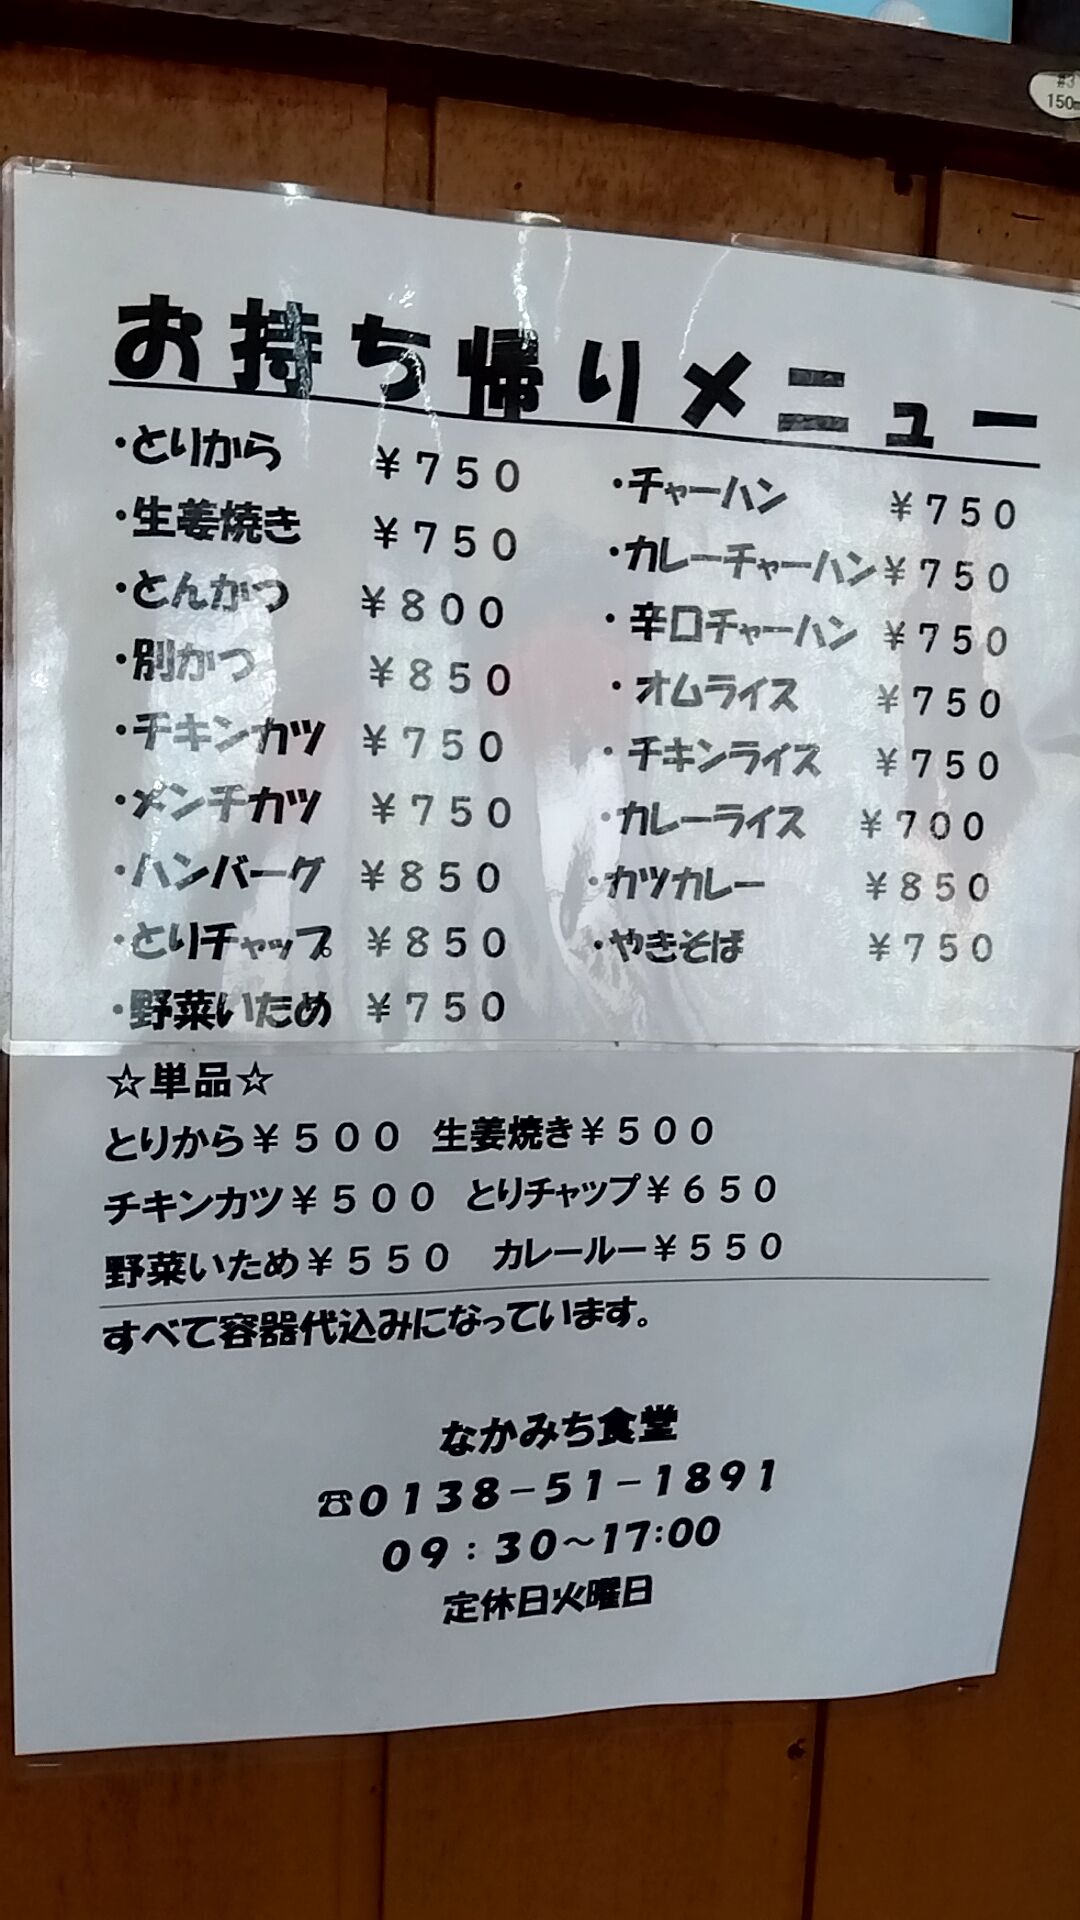 #3
150m
お持ち帰りメニュー
・とりから ￥750
・生姜焼き ￥750
・とんかつ ￥800
・別かつ ￥850
・チキンカツ ￥750
・メンチカツ ￥750
・ハンバーグ ￥850
・とりチャップ ￥850
・野菜いため ￥750
・チャーハン ￥750
・カレーチャーハン ￥750
・辛口チャーハン ￥750
・オムライス ￥750
・チキンライス ￥750
・カレーライス ￥700
・カツカレー ￥850
・やきそば ￥750
☆単品☆
とりから￥500 生姜焼き￥500
チキンカツ￥500 とりチャップ￥650
野菜いため￥550 カレールー￥550
すべて容器代込みになっています。
なかみち食堂
☎0138-51-1891
09:30～17:00
定休日火曜日